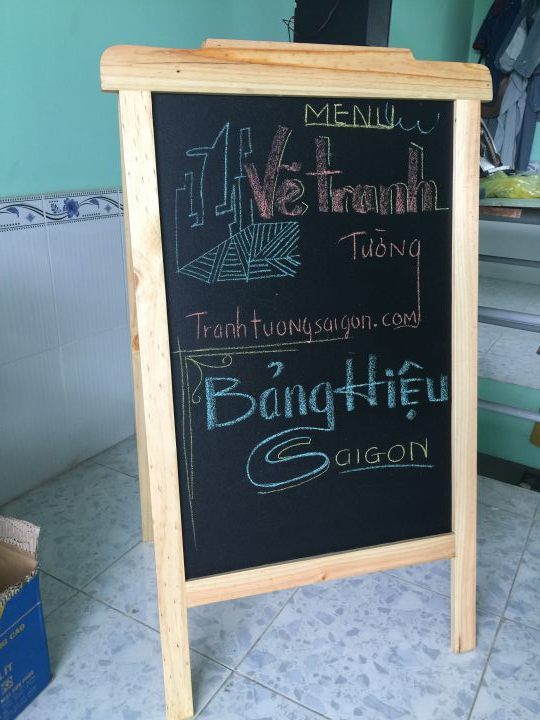 MENU
Vẽ tranh
TƯỜNG
Tranhtuongsaigon.com
Bảng Hiệu
SAIGON